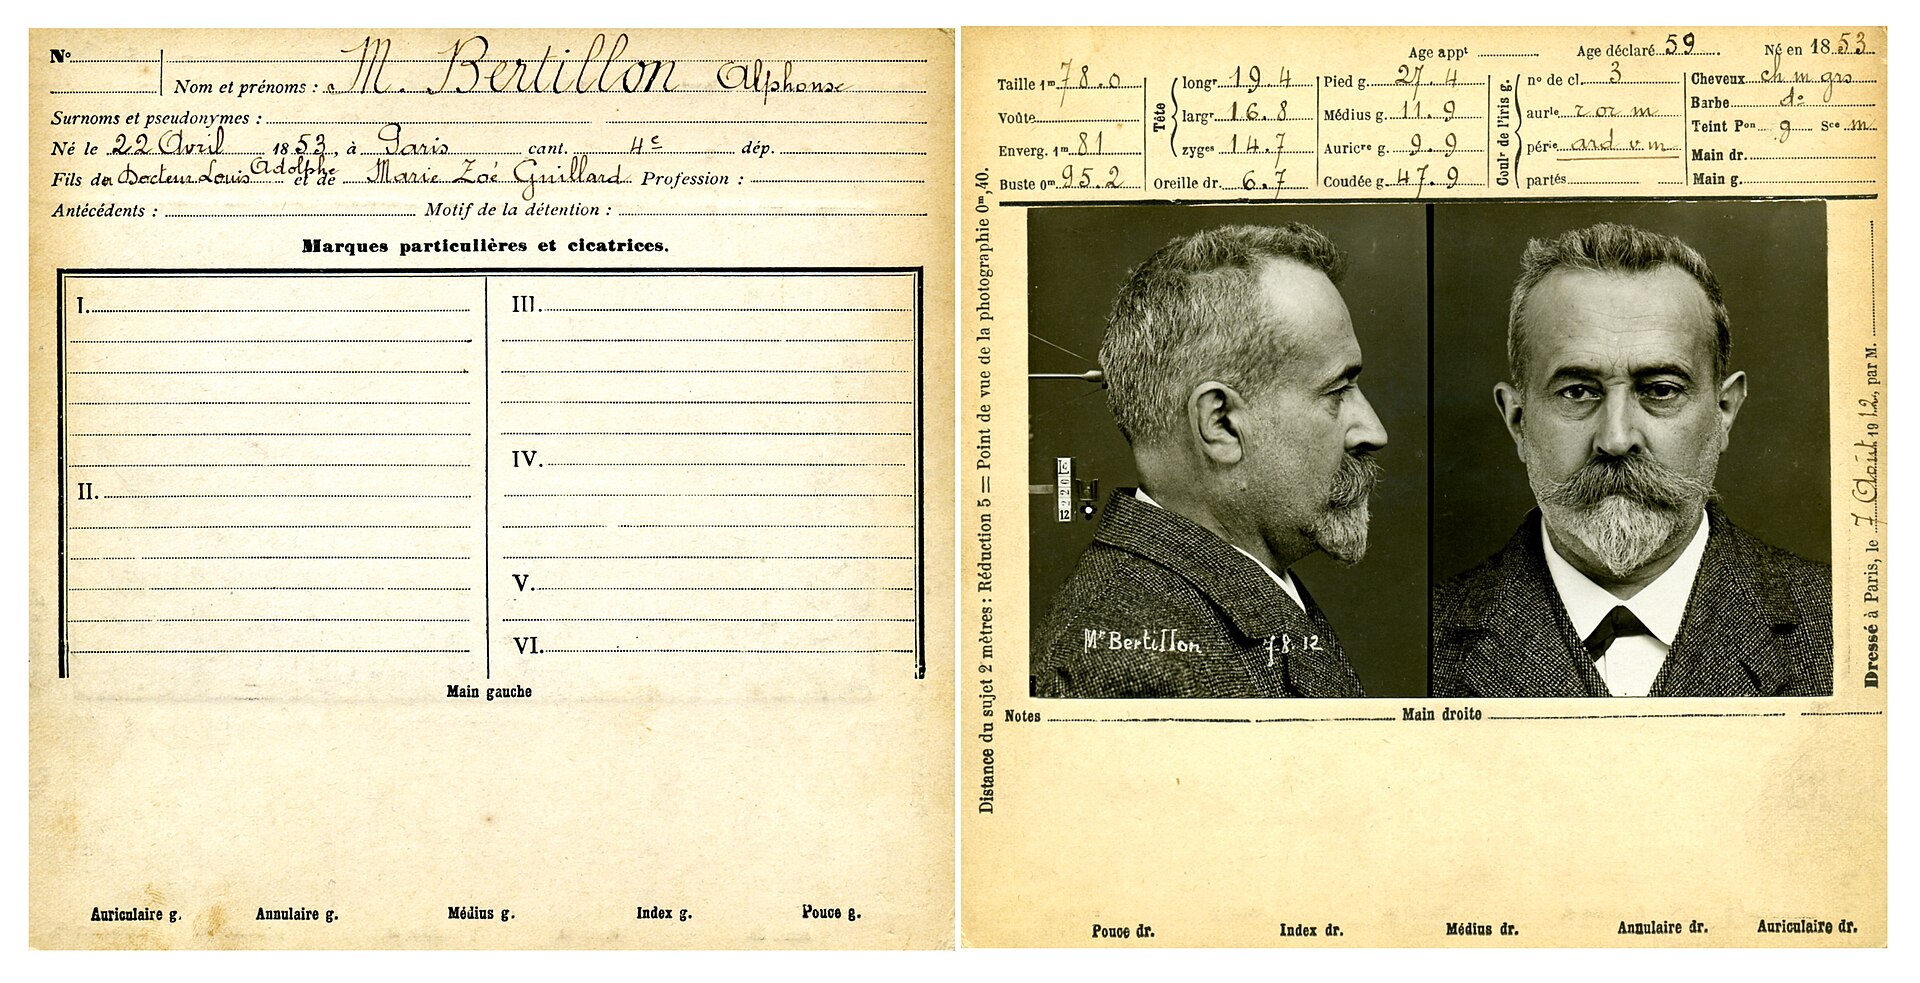 N°
Nom et prénoms : M. Bertillon Alphonse
Surnoms et pseudonymes :
Né le 22 Avril 1853, à Paris cant. 4e dép.
Fils de Docteur Louis Adolphe et de Marie Zoé Guillard Profession :
Antécédents : Motif de la détention :
Marques particulières et cicatrices.
I.
II.
III.
IV.
V.
VI.
Main gauche
Auriculaire g. Annulaire g. Médius g. Index g. Pouce g.
Age appt Age déclaré 59 Né en 1853
Taille 1m 78.0
Voûte
Enverg. 1m 81
Buste 0m 95.2
Tête
longr 19.4
largr 16.8
zyges 14.7
Oreille dr. 6.7
Pied g. 27.4
Médius g. 11.9
Auricre g. 9.9
Coudée g. 47.9
Coulr de l'iris g.
n° de cl. 3
aurle r or m
périe ard v m
partés
Cheveux ch m grs
Barbe do
Teint Pon g Sce m
Main dr.
Main g.
Distance du sujet 2 mètres : Réduction 5 = Point de vue de la photographie 0m,40.
12
Mr Bertillon 7.8.12
Dressé à Paris, le 7 Août 1912, par M.
Notes Main droite
Pouce dr. Index dr. Médius dr. Annulaire dr. Auriculaire dr.